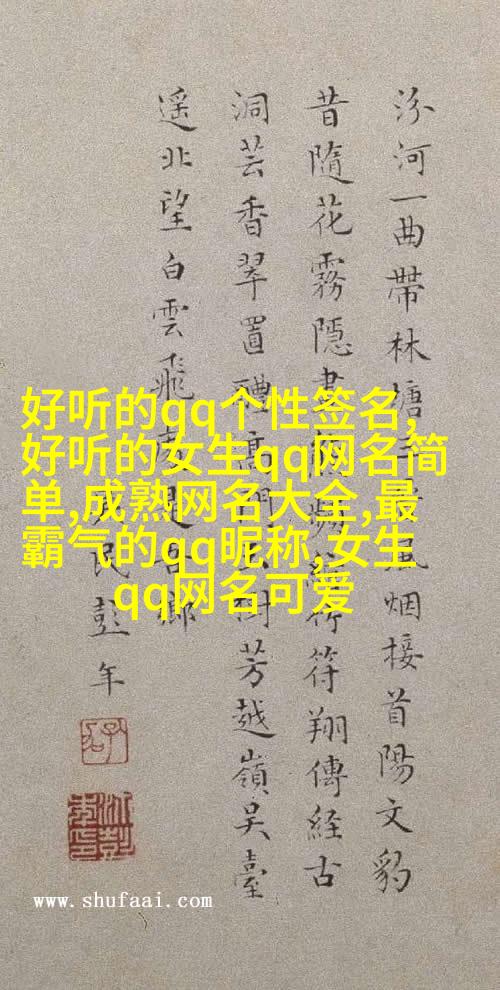 汾河一曲帶林塘風烟接首陽文豹
昔隨花霧隱書歸符翔傳經古
洞芸香翠置醴高門樹芳越嶺吳臺
遥北望白雲飛是鄉
民彭年
好听的qq个性签名,
好听的女生qq网名简
单,成熟网名大全,最
霸气的qq昵称,女生
qq网名可爱
www.shufaai.com